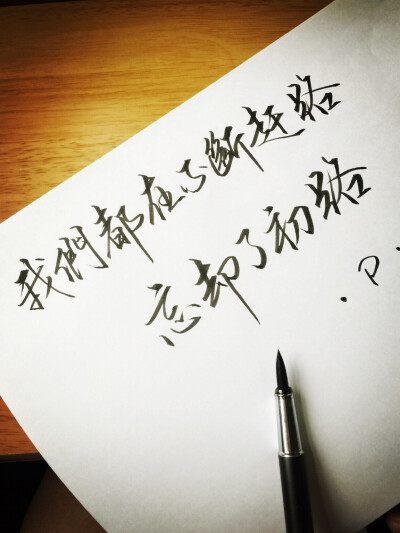 我們都在不斷赶路
忘却了初路
. P.